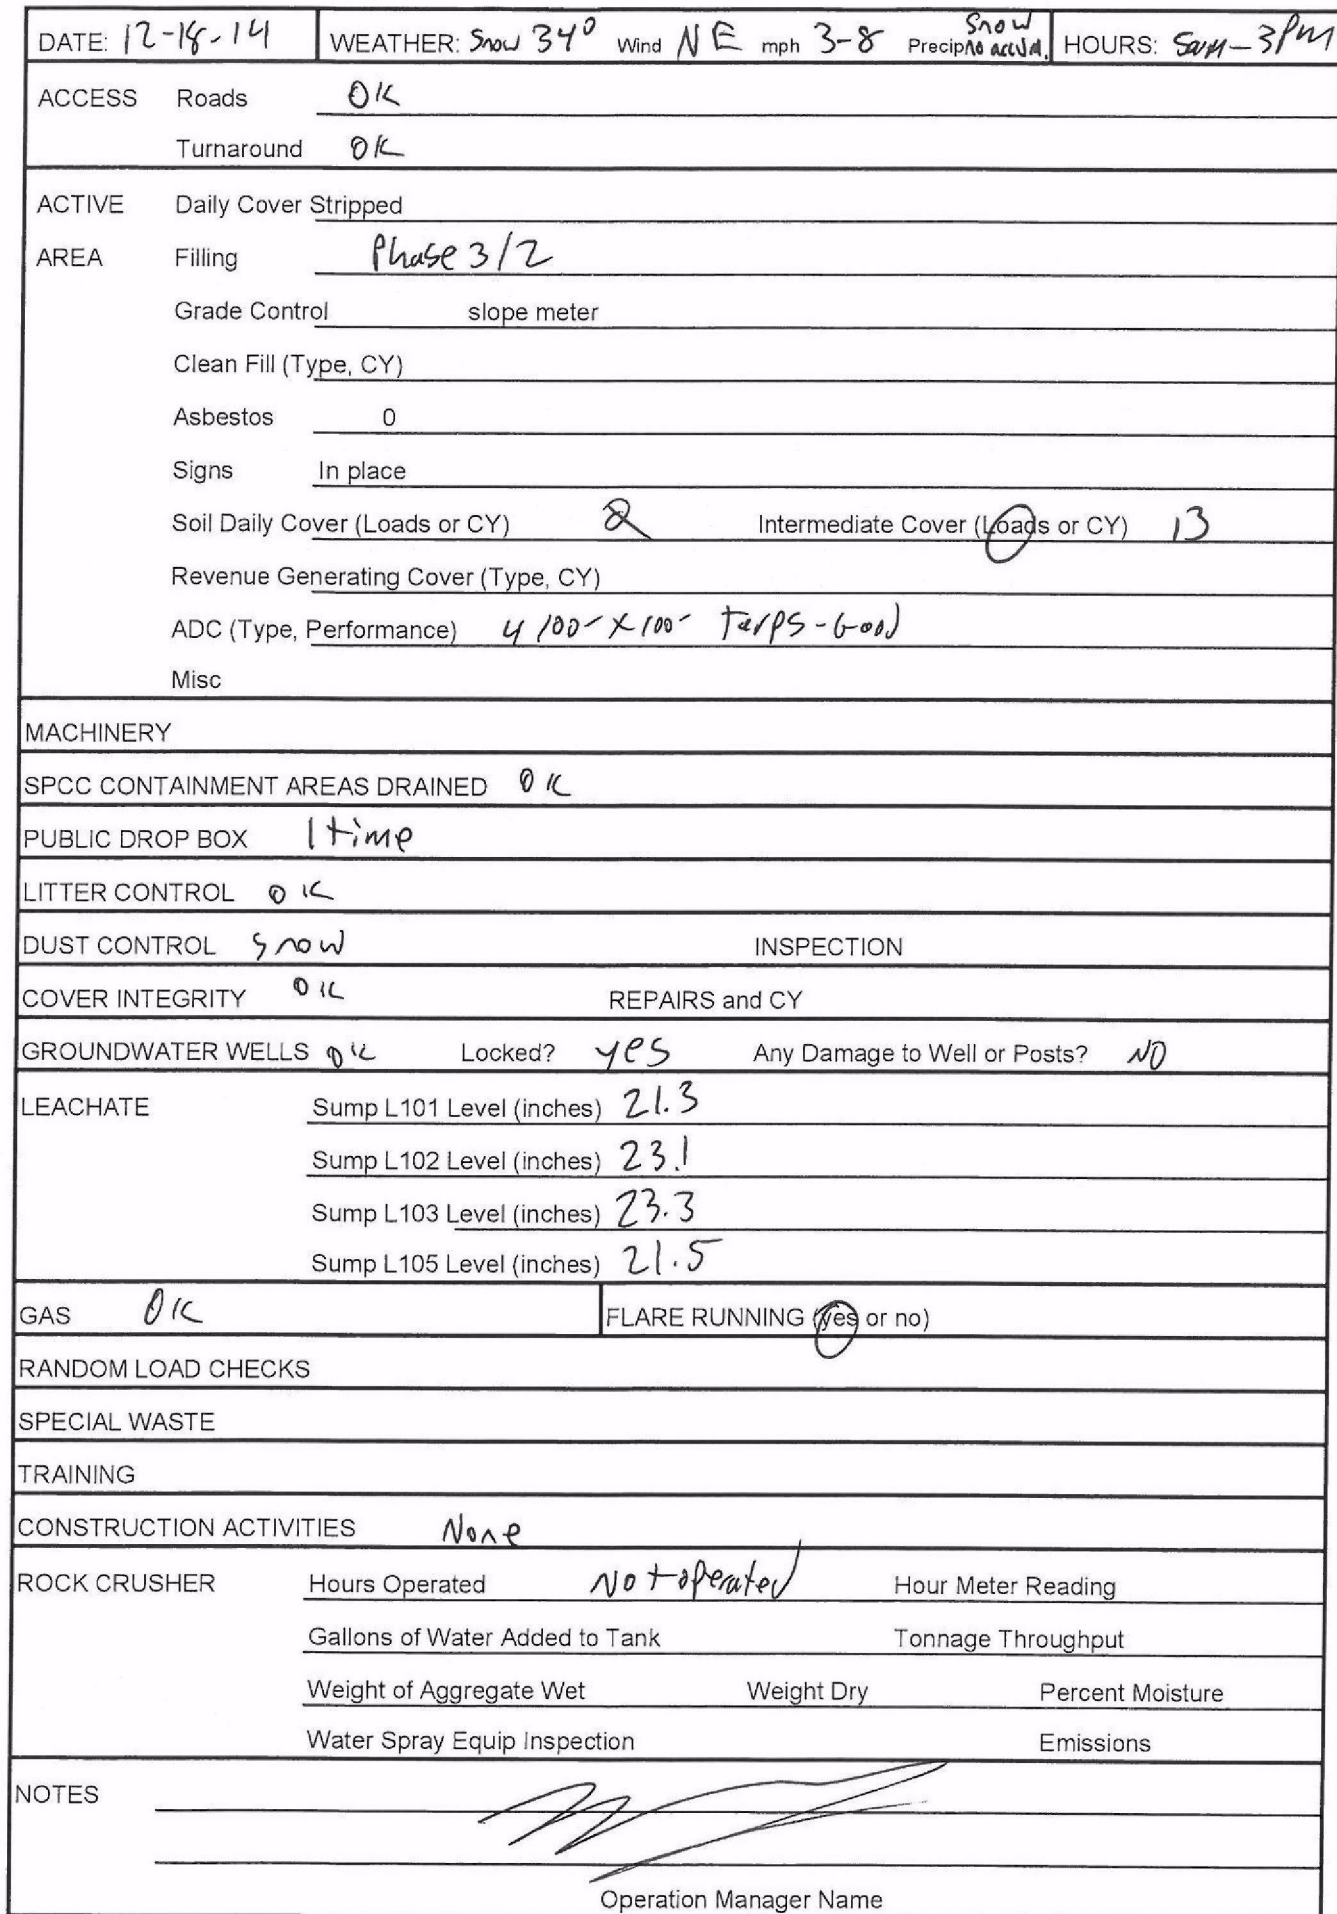 DATE: 12-18-14 WEATHER: Snow 34° Wind NE mph 3-8 Precip Snow no accum. HOURS: 5am-3PM
ACCESS Roads OK
Turnaround OK
ACTIVE Daily Cover Stripped
AREA Filling Phase 3/2
Grade Control slope meter
Clean Fill (Type, CY)
Asbestos 0
Signs In place
Soil Daily Cover (Loads or CY) Intermediate Cover (Loads or CY) 13
Revenue Generating Cover (Type, CY)
ADC (Type, Performance) 4 100' X 100' Tarps - Good
Misc
MACHINERY
SPCC CONTAINMENT AREAS DRAINED OK
PUBLIC DROP BOX 1 time
LITTER CONTROL OK
DUST CONTROL Snow INSPECTION
COVER INTEGRITY OK REPAIRS and CY
GROUNDWATER WELLS OK Locked? yes Any Damage to Well or Posts? NO
LEACHATE Sump L101 Level (inches) 21.3
Sump L102 Level (inches) 23.1
Sump L103 Level (inches) 23.3
Sump L105 Level (inches) 21.5
GAS OK FLARE RUNNING (yes or no)
RANDOM LOAD CHECKS
SPECIAL WASTE
TRAINING
CONSTRUCTION ACTIVITIES None
ROCK CRUSHER Hours Operated Not operated Hour Meter Reading
Gallons of Water Added to Tank Tonnage Throughput
Weight of Aggregate Wet Weight Dry Percent Moisture
Water Spray Equip Inspection Emissions
NOTES
Operation Manager Name